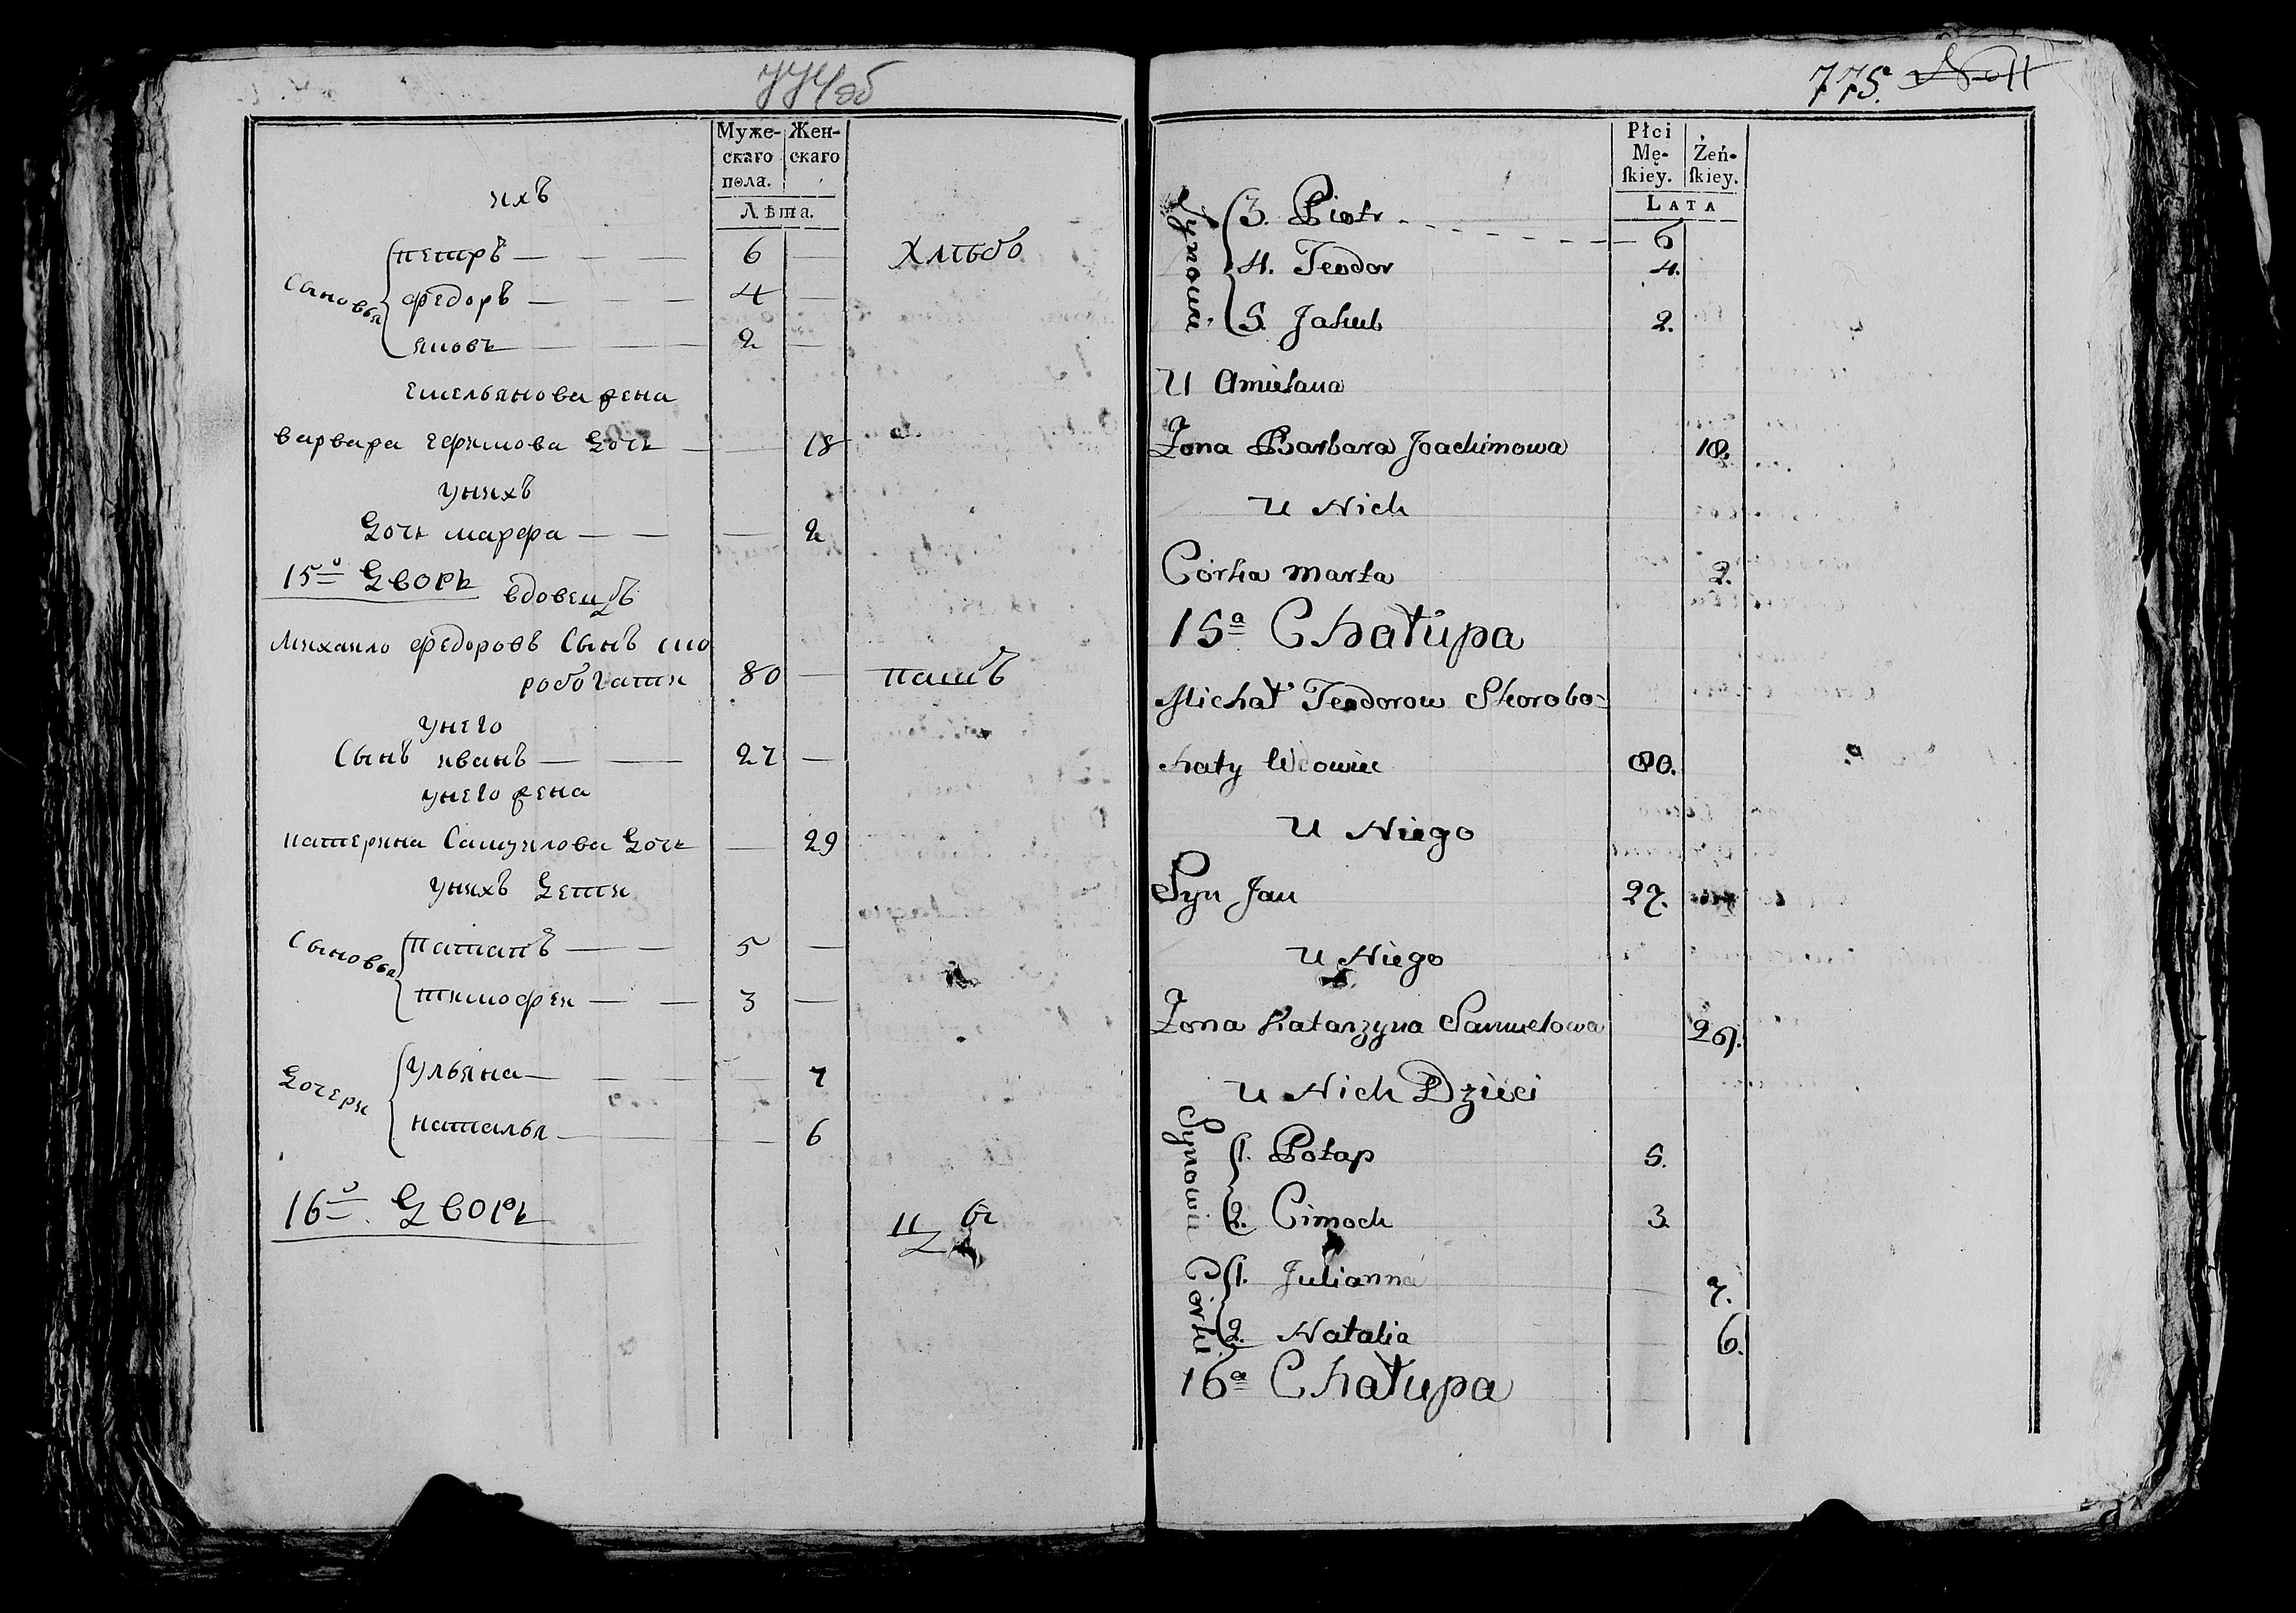 774об
Муже-
скаго
пола.
Жен-
скаго
Лѣта.
ихъ
Сыновья
петръ — — — 6 —
Хлѣбо
федоръ — — — 4 —
яковъ — — 2 —
емельянова жена
варвара ефимова дочь — — 18
унихъ
дочь марфа — — — 2
15й дворъ
вдовецъ
михаило федоровъ сынъ ско
робогати 80 —
пашъ
унего
сынъ иванъ — — 27 —
унего жена
катерина самуилова дочь — 29
унихъ дети
Сыновья
патапъ — — 5 —
тимофеи — — 3 —
дочери
ульяна — — — — 7
наталья — — 6
16й дворъ
775.
Płci
Mę-
ſkiey.
Żeń-
ſkiey.
LATA
Synowie
3. Piotr - - - - - 6
4. Teodor 4.
5. Jakub 2.
U Amielana
Żona Barbara Joachimowa 18.
U Nich
Córka Marta 2.
15a Chałupa
Michał Teodorow Skorobo=
haty Wdowiec 80.
U Niego
Syn Jan 27.
U Niego
Żona Katarzyna Samuelowa 29.
U Nich Dzieci
Synowie
1. Potap 5.
2. Cimoch 3.
Córki
1. Julianna 7.
2. Natalia 6.
16a Chałupa